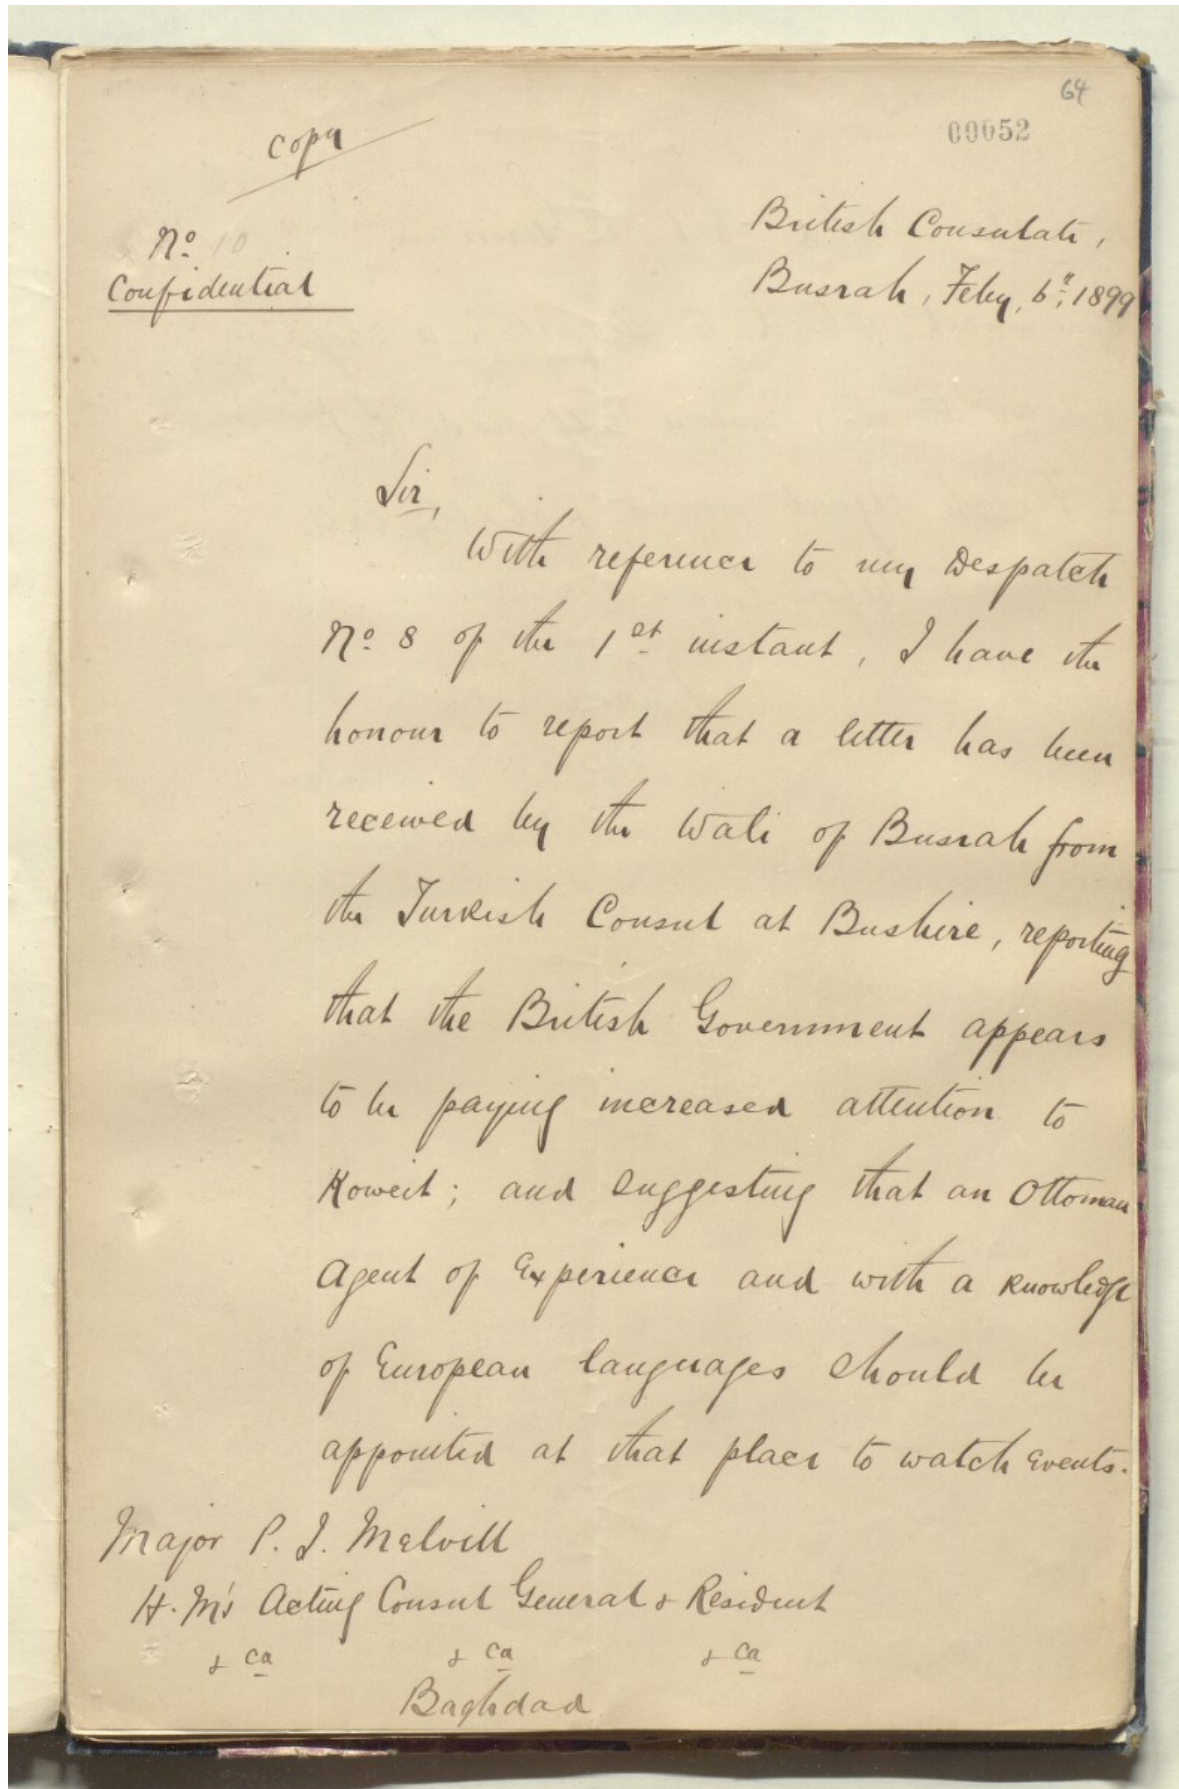 64
00052
Copy
No. 10
Confidential
British Consulate,
Busrah, Feby, 6th, 1899
Sir,
With reference to my Despatch
No. 8 of the 1st instant, I have the
honour to report that a letter has been
received by the Wali of Busrah from
the Turkish Consul at Bushire, reporting
that the British Government appears
to be paying increased attention to
Koweit; and suggesting that an Ottoman
Agent of Experience and with a knowledge
of European languages should be
appointed at that place to watch events.
Major P. J. Melvill
H. M's Acting Consul General & Resident
&ca &ca &ca
Baghdad